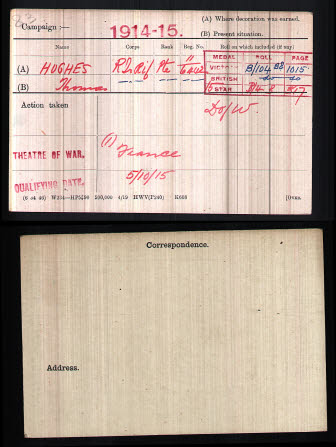 Campaign :— 1914-15.
(A) Where decoration was earned.
(B) Present situation.
Name Corps Rank Reg. No. Roll on which included (if any)
MEDAL ROLL PAGE
(A) HUGHES R Ir Rif Pte VICTORY B/104 B2 1015
(B) Thomas BRITISH do do
STAR
Action taken
D of W.
THEATRE OF WAR. (1) France
QUALIFYING DATE. 5/10/15
(6 34 46) W234—HP5590 500,000 4/19 HWV(P240) K608 [OVER.
Correspondence.
Address.